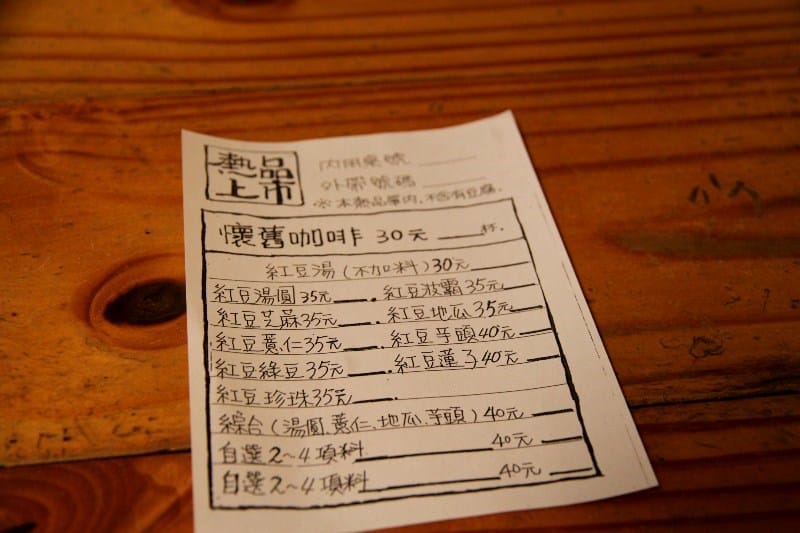 熱品
上市
內用桌號
外帶號碼
※本熱品單內,不含有豆腐.
懷舊咖啡 30元 ____杯.
紅豆湯(不加料)30元____
紅豆湯圓35元____. 紅豆波霸35元____
紅豆芝蔴35元____. 紅豆地瓜35元____
紅豆薏仁35元____. 紅豆芋頭40元____
紅豆綠豆35元____. 紅豆蓮子40元____
紅豆珍珠35元____.
綜合(湯圓.薏仁.地瓜.芋頭)40元____
自選2~4項料____40元____
自選2~4項料____40元____